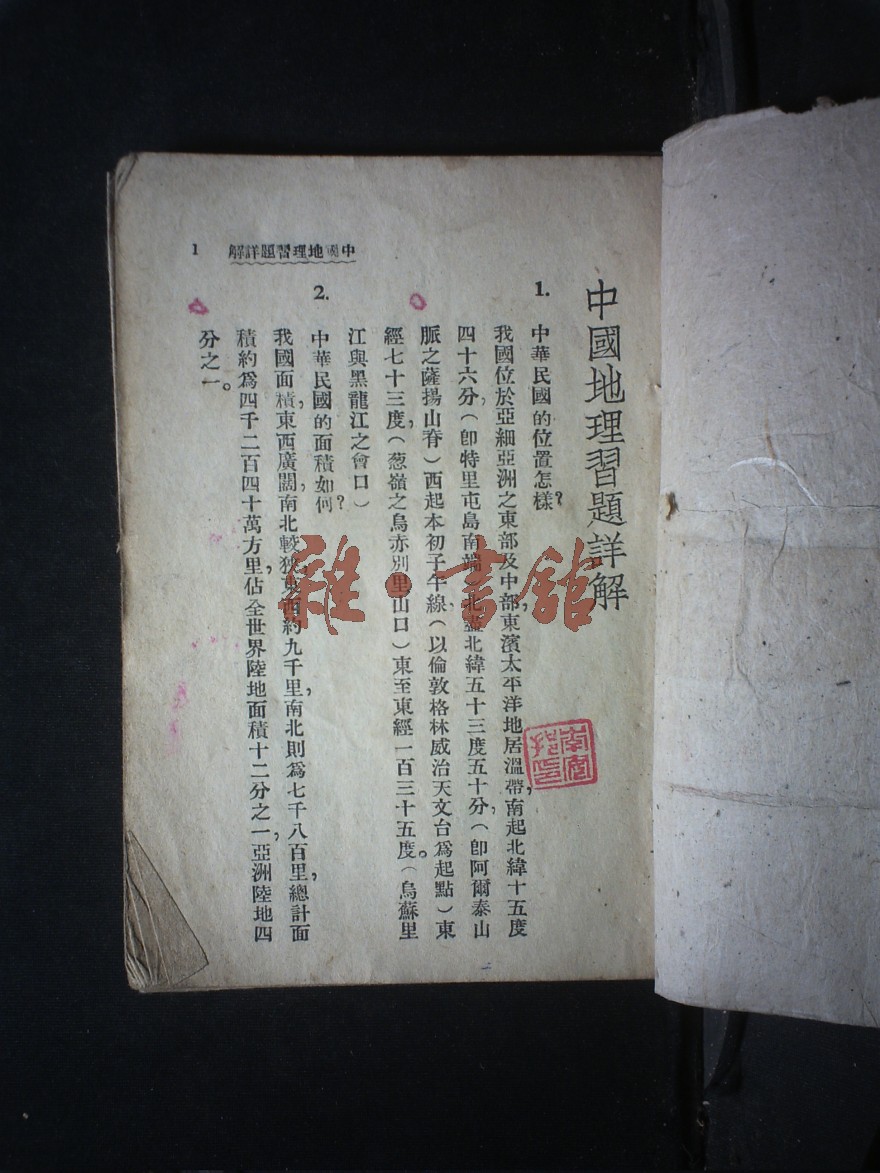 中國地理習題詳解
1. 中華民國的位置怎樣?
我國位於亞細亞洲之東部及中部,東濱太平洋,地居溫帶,南起北緯十五度
四十六分,(卽特里屯島南端)北盡北緯五十三度五十分,(卽阿爾泰山
脈之薩揚山脊)西起本初子午線(以倫敦格林威治天文台爲起點)東
經七十三度,(葱嶺之烏赤別里山口)東至東經一百三十五度。(烏蘇里
江與黑龍江之會口)
2. 中華民國的面積如何?
我國面積,東西廣闊,南北較狹,東西約九千里,南北則爲七千八百里,總計面
積約爲四千二百四十萬方里,佔全世界陸地面積十二分之一,亞洲陸地四
分之一。
中國地理習題詳解 1
雜·書館